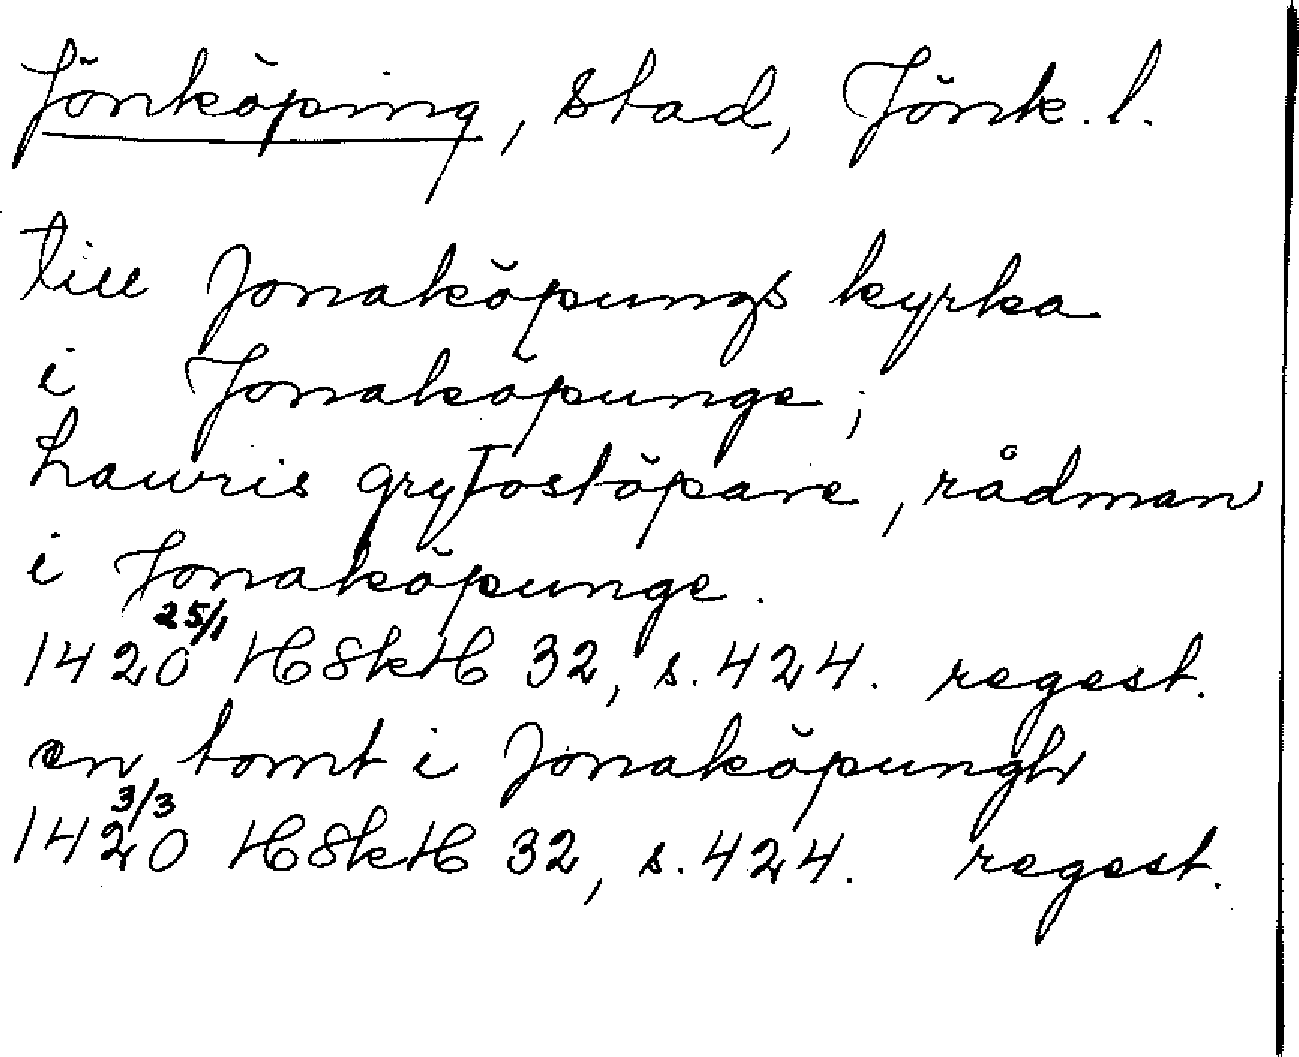 Jönköping, stad, Jönk. l.
till Jonaköpungs kyrka
i Jonaköpunge;
Lauris grytostöpare, rådman
i Jonaköpunge.
1420 25/1 HSkH 32, s. 424. regest.
en tomt i Jonaköpungh
1420 3/3 HSkH 32, s. 424. regest.